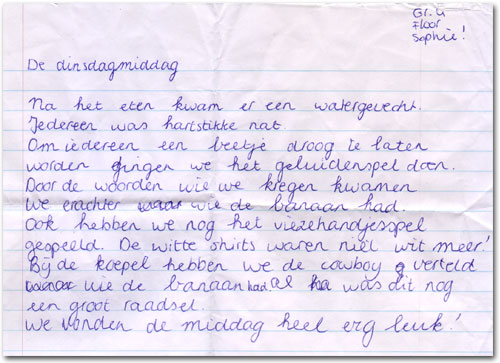 Gr. u
Floor
Sophie!
De dinsdagmiddag
Na het eten kwam er een watergevecht.
Iedereen was hartstikke nat.
Om iedereen een beetje droog te laten
worden gingen we het geluidenspel doen.
Door de woorden wie we kregen kwamen
we erachter waar wie de banaan had.
Ook hebben we nog het viezehandjesspel
gespeeld. De witte shirts waren niet wit meer!
Bij de koepel hebben we de cowboy verteld
wie de banaan had, al was dit nog
een groot raadsel.
We vonden de middag heel erg leuk!